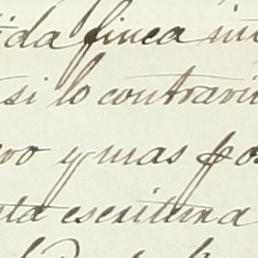 da finca in
si lo contravi
ro y mas pos
ta escritura